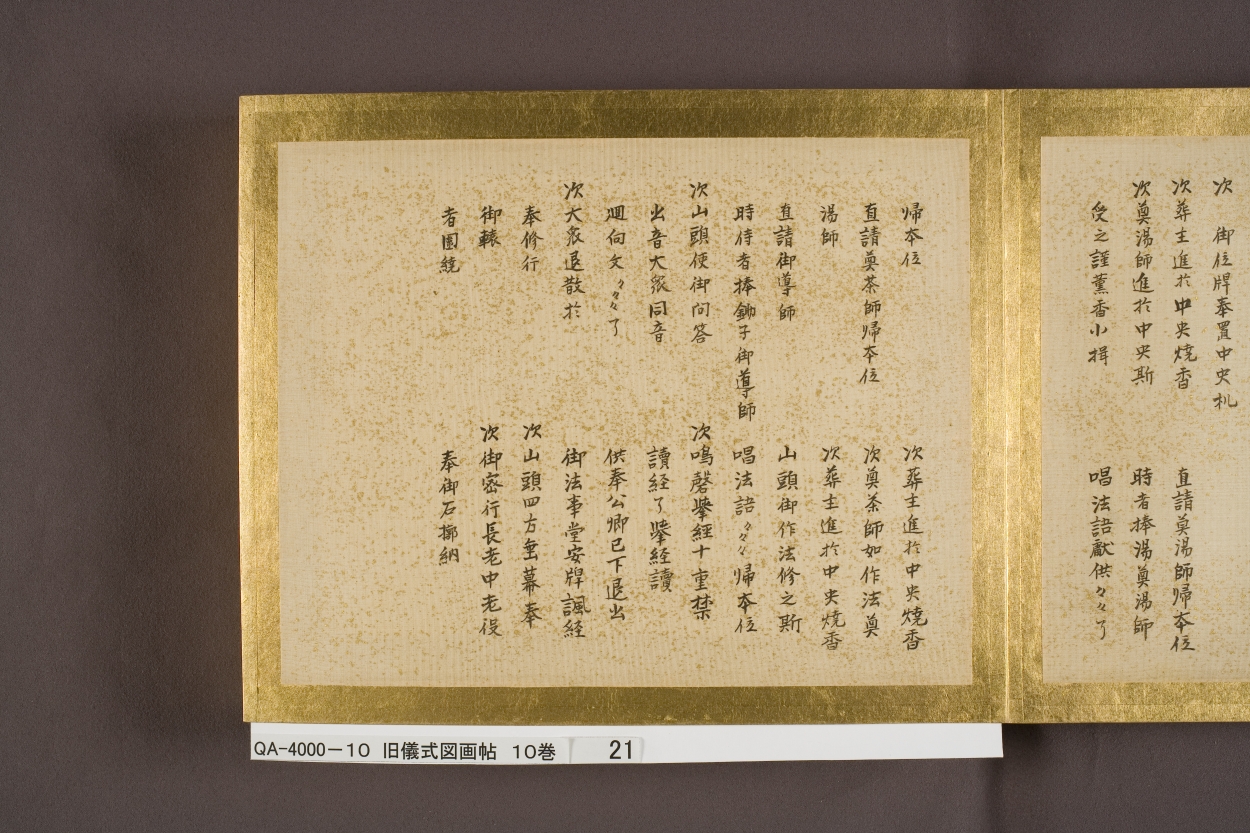 次 御位牌奉置中央机
次葬主進於中央燒香
直請奠湯師帰本位
次奠湯師進於中央斯
時者捧湯奠湯師
受之謹薫香小揖
唱法語獻供々々了
帰本位
次葬主進於中央燒香
直請奠茶師帰本位
次奠茶師如作法奠
湯師
次葬主進於中央燒香
直請御導師
山頭御作法修之斯
時侍者捧鋤子御導師
唱法語々々々帰本位
次山頭便御問答
次鳴磬挙経十重禁
出音大衆同音
讀経了挙経讀
廻向文々々々了
供奉公卿已下退出
次大衆退散於
御法事堂安牌諷経
奉修行
次山頭四方垂幕奉
御轅
次御密行長老中老役
者圍繞
奉御石槨納
QA-4000-10 旧儀式図画帖 10巻 21